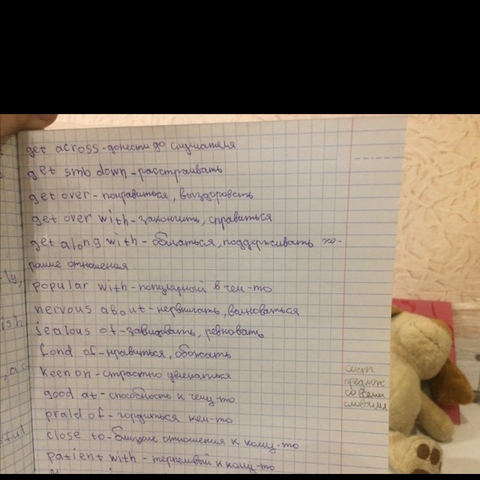 get across - донести до слушателя
get smb down - расстраивать
get over - поправиться, выздороветь
get over with - закончить, справиться
get along with - общаться, поддерживать хо-
рошие отношения
popular with - популярный в чем-то
nervous about - нервничать, волноваться
jealous of - завидовать, ревновать
fond of - нравиться, обожать
keen on - страстно увлекаться
good at - способность к чему-то
praid of - гордиться кем-то
close to - близкие отношения к кому-то
patient with - терпеливый к кому-то
ly,
ish
,ac
eful
предлож
со всеми